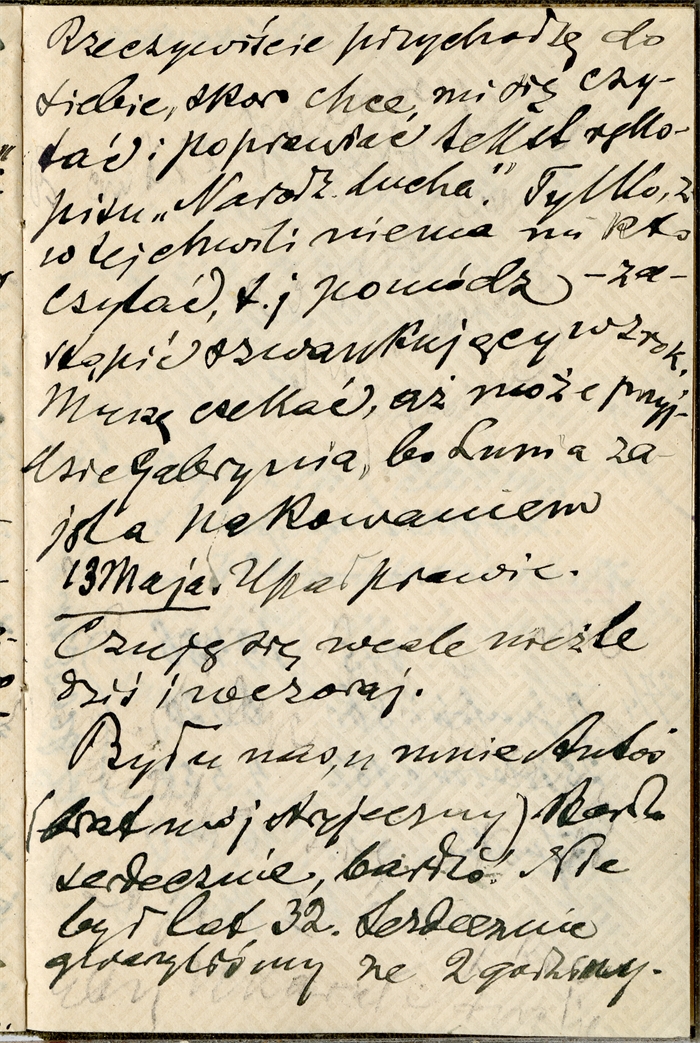 Rzeczywiście przychodzę do
siebie, skoro chce mi się czy-
tać i poprawiać tekst ręko-
pisu „Narodz. ducha”. Tylko, z
w tej chwili niema mi kto
czytać, t. j pomódz – za-
stąpić szwankujący wzrok.
Muszę czekać, aż może przyj-
dzie Gabrynia, bo Lunia za-
jęta pakowaniem
13 Maja. Upał prawie.
Czuję się wcale nieźle
dziś i wczoraj.
Był u nas, u mnie Antoś
(brat mój stryjeczny) Bardzo
serdecznie, bardzo! Nie
był lat 32. Serdecznie
gwarzyliśmy ze 2 godziny.